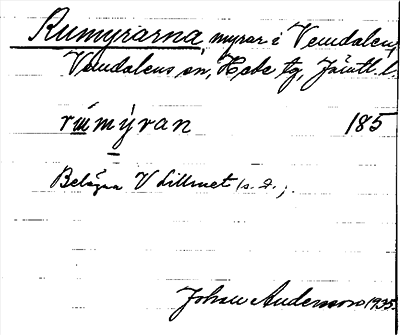 Rumyrarna, myrar i Vemdalen,
Vemdalens sn, Hede tg, Jämtl. l.
rúmýran 185
Belägna V Lillruet (s. d.);
Johan Andersson 1935.